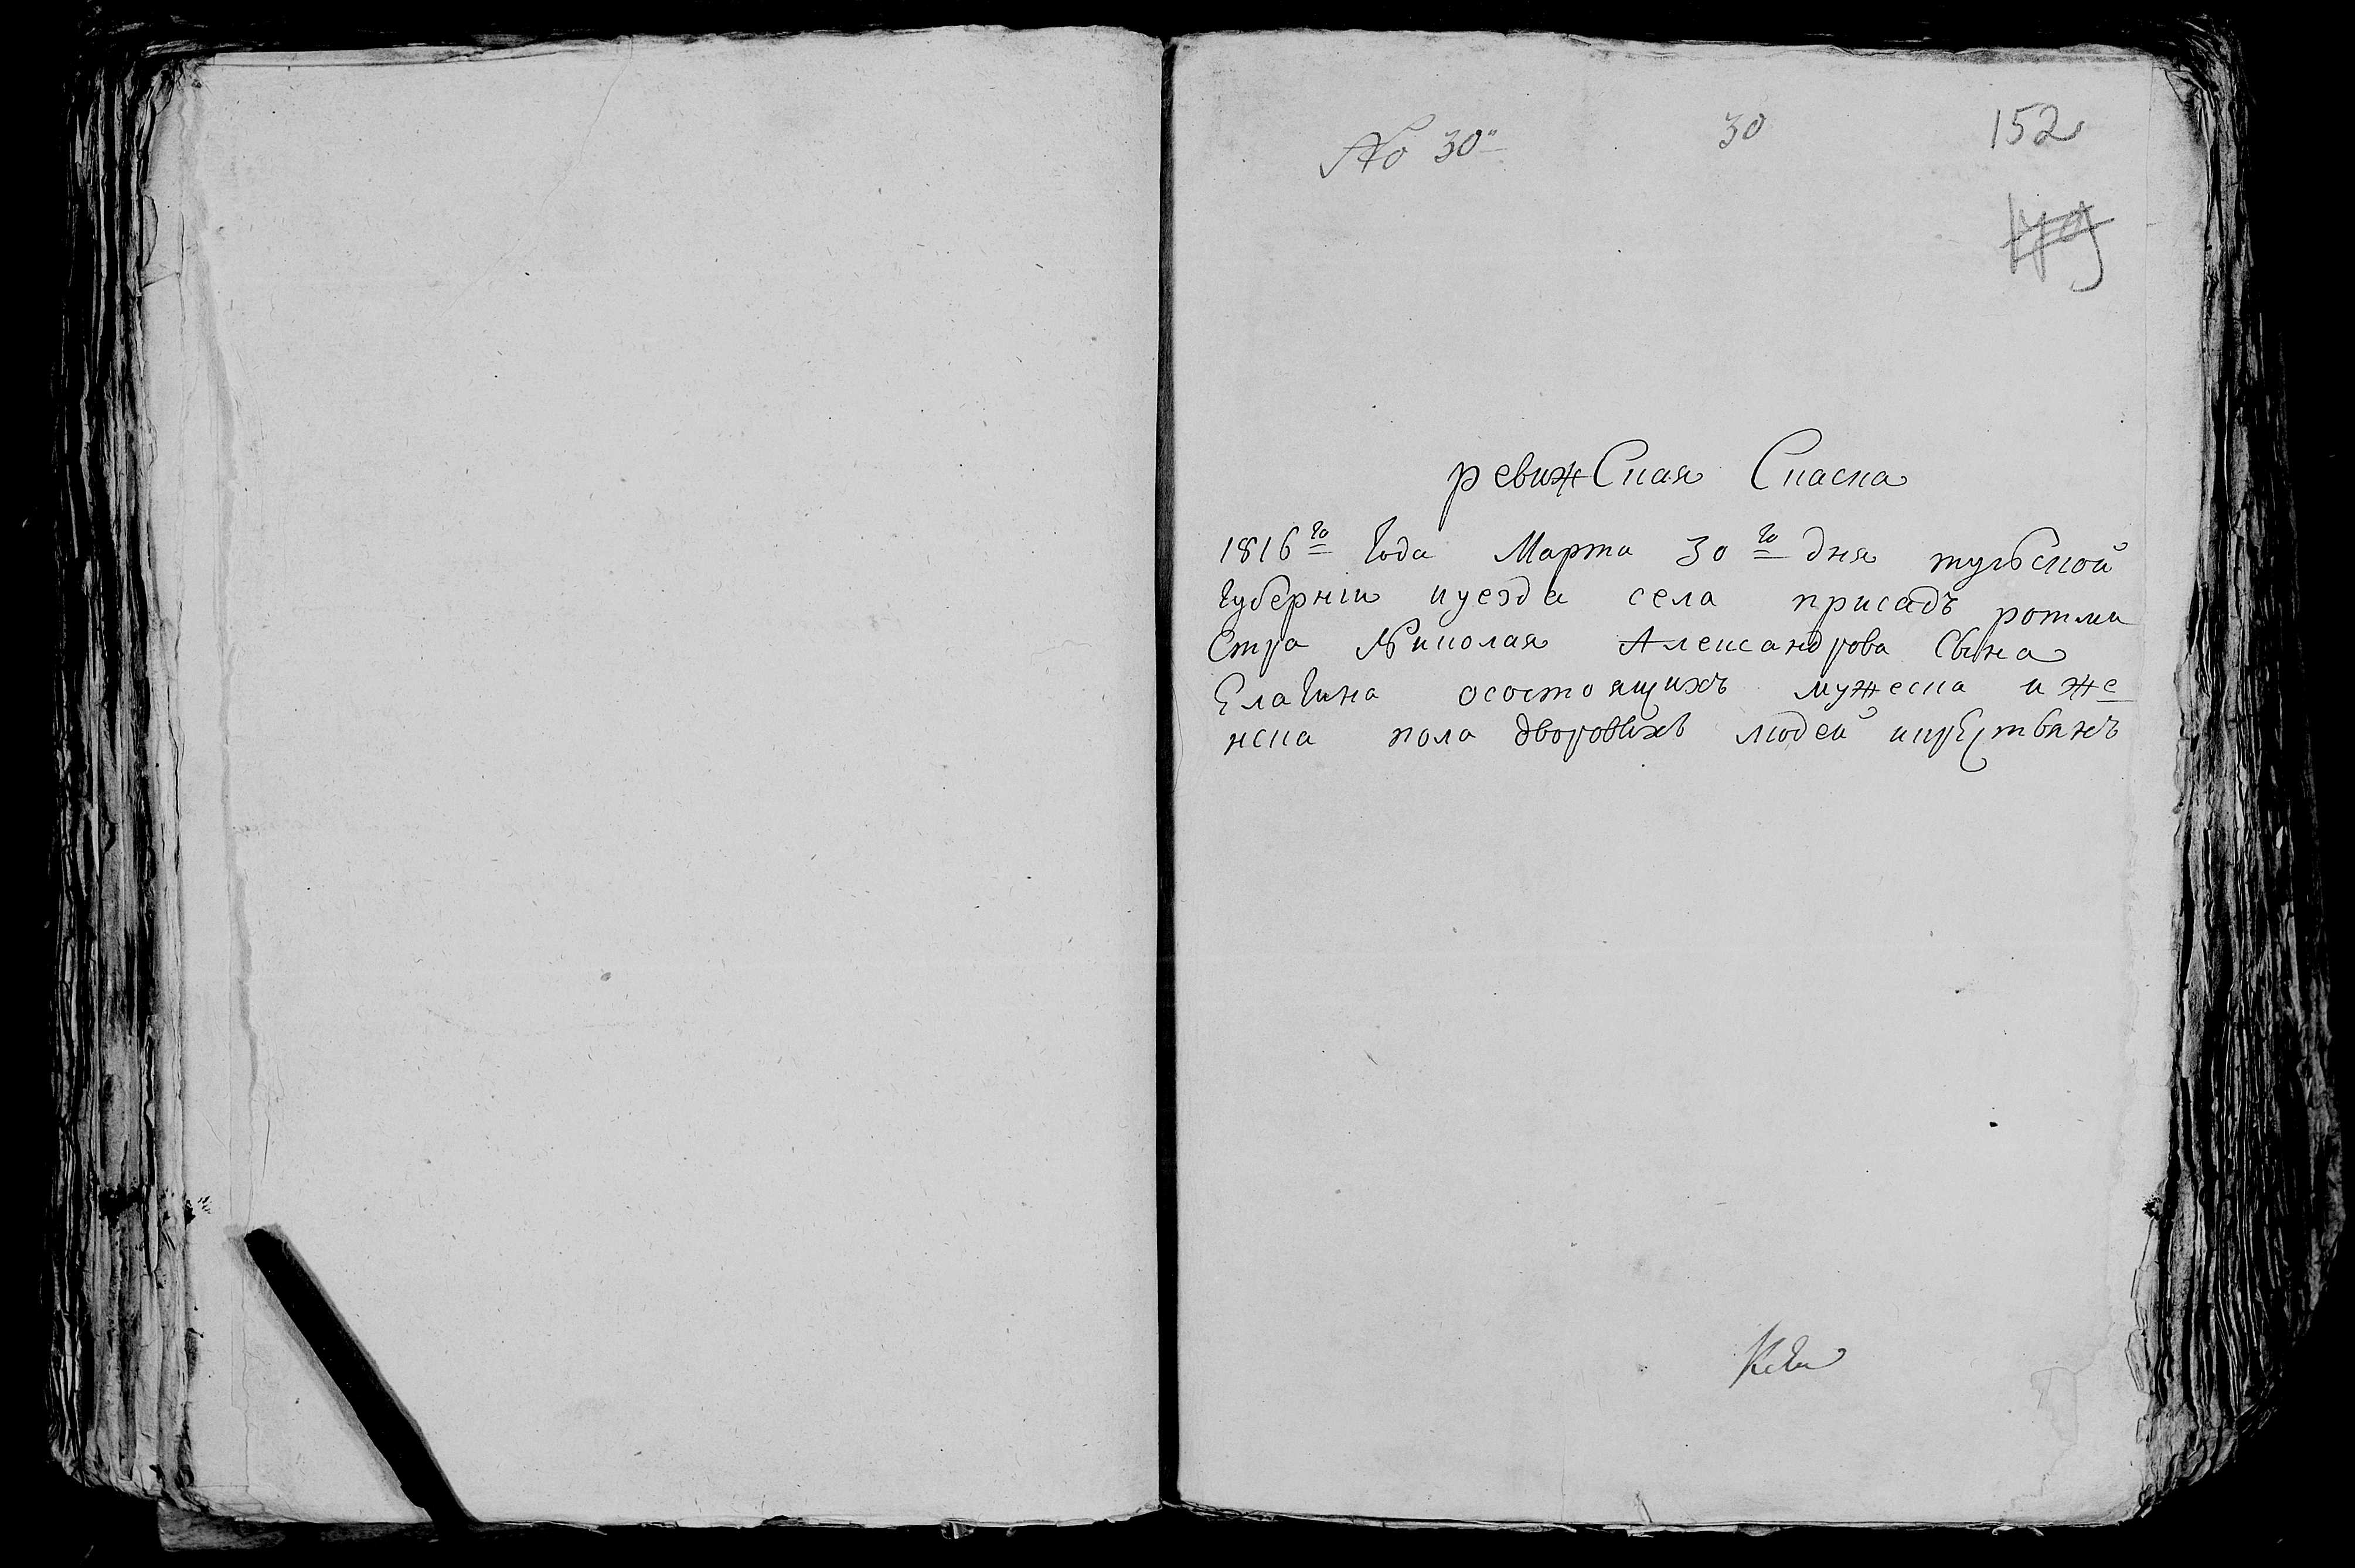 No 30 30 152
ревижСкая Скаска
1816го Года Марта 30го дня тульской
Губернiи иуезда села присадъ ротми
Стра Николая Александрова Сына
Елагина осостоящихъ мужеска иже
нска пола дворовыхъ людей икрестьянъ